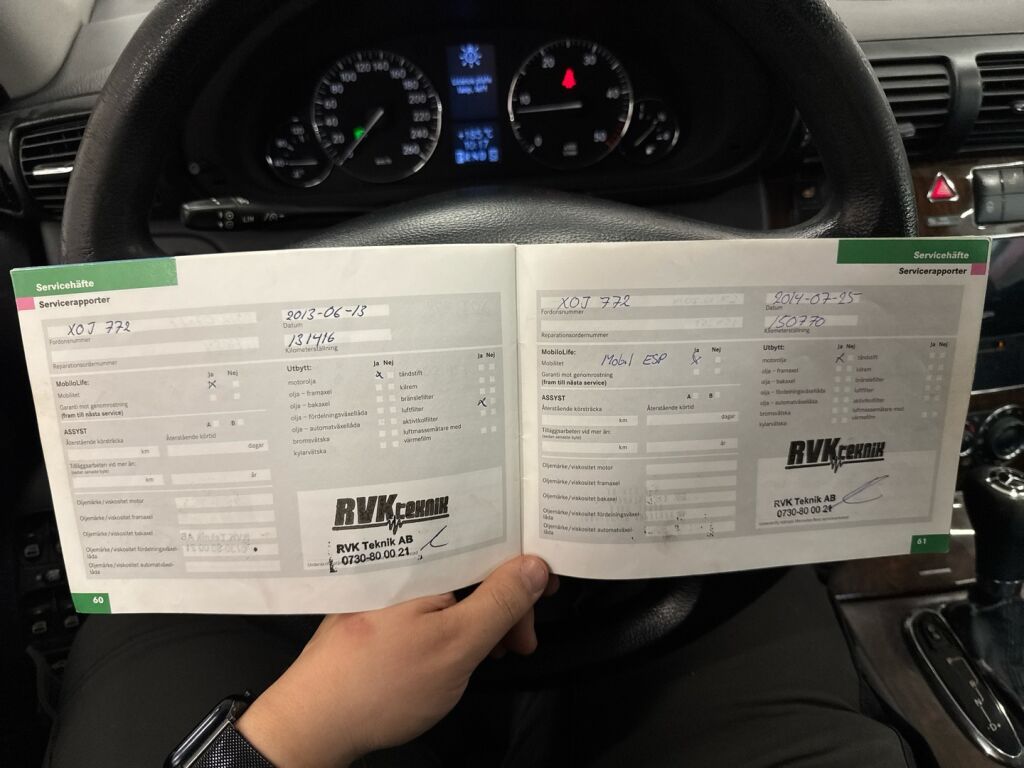 20 40 60 80 100 120 140 160 180 200 220 240 260
km/h
+18.5°C
10:17
0 10 20 30 40 50
LIM
Servicehäfte
Servicerapporter
XOJ 772
Fordonsnummer
2013-06-13
Datum
131416
Kilometerställning
Reparationsordernummer
MobiloLife:
Ja Nej
Mobilitet
x
Garanti mot genomrostning
(fram till nästa service)
ASSYST
A B
Återstående körsträcka
Återstående körtid
km
dagar
Tilläggsarbeten vid mer än:
(sedan senaste byte)
km
år
Oljemärke/viskositet motor
Oljemärke/viskositet framaxel
Oljemärke/viskositet bakaxel
Oljemärke/viskositet fördelningsväxel-
låda
Oljemärke/viskositet automatväxel-
låda
Utbytt:
Ja Nej
Ja Nej
motorolja
x
tändstift
olja – framaxel
kilrem
olja – bakaxel
bränslefilter
olja – fördelningsväxellåda
luftfilter
x
olja – automatväxellåda
aktivkolfilter
bromsvätska
luftmassemätare med
värmefilm
kylarvätska
RVK teknik
RVK Teknik AB
0730-80 00 21
60
Servicehäfte
Servicerapporter
XOJ 772
Fordonsnummer
2014-07-25
Datum
150770
Kilometerställning
Reparationsordernummer
MobiloLife:
Ja Nej
Mobilitet
Mobil ESP
x
Garanti mot genomrostning
(fram till nästa service)
ASSYST
A B
Återstående körsträcka
Återstående körtid
km
dagar
Tilläggsarbeten vid mer än:
(sedan senaste byte)
km
år
Oljemärke/viskositet motor
Oljemärke/viskositet framaxel
Oljemärke/viskositet bakaxel
Oljemärke/viskositet fördelningsväxel-
låda
Oljemärke/viskositet automatväxel-
låda
Utbytt:
Ja Nej
Ja Nej
motorolja
x
tändstift
olja – framaxel
kilrem
olja – bakaxel
bränslefilter
olja – fördelningsväxellåda
luftfilter
olja – automatväxellåda
aktivkolfilter
bromsvätska
luftmassemätare med
värmefilm
kylarvätska
RVK teknik
RVK Teknik AB
0730-80 00 21
61